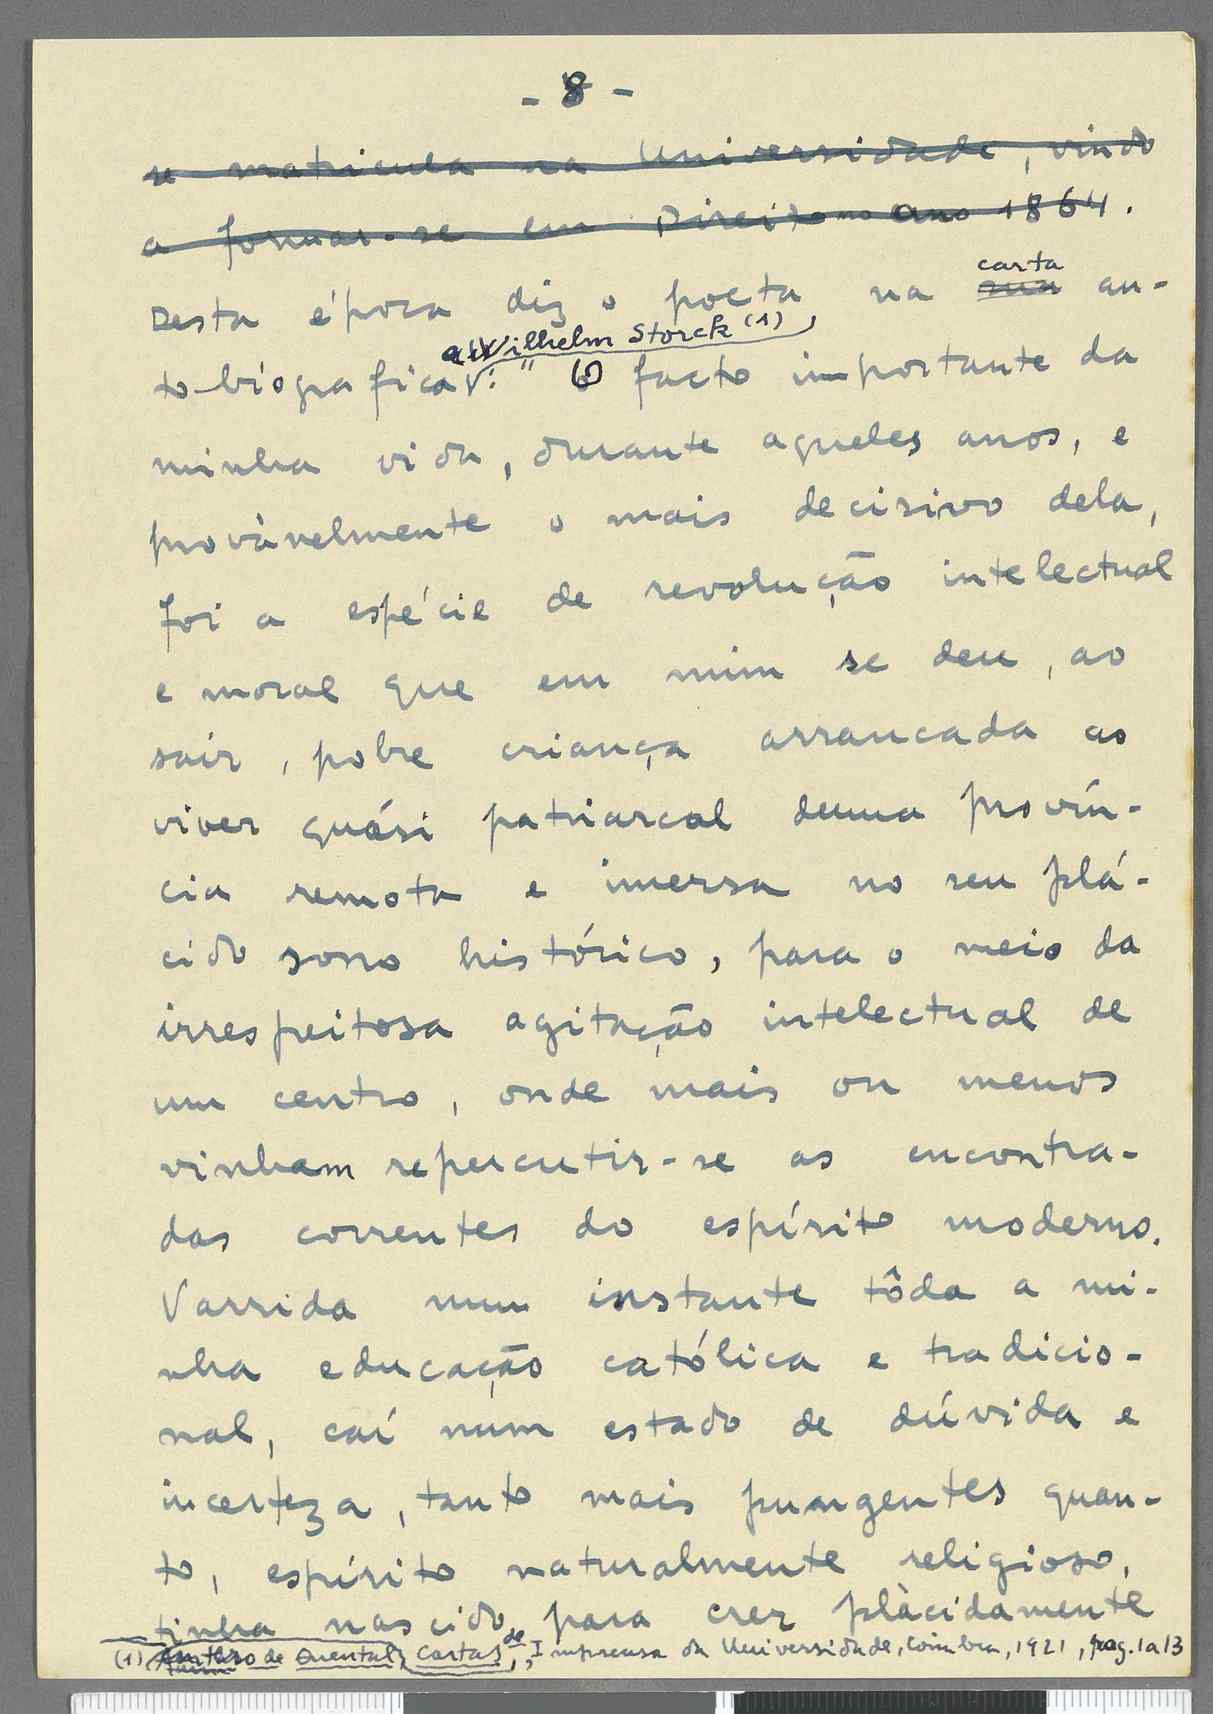 - 8 -
se matricula na Universidade, vindo
a formar-se em Direito no ano 1864.
Desta época diz o poeta na sua carta au-
to-biografica a Wilhelm Storck (1): "O facto importante da
minha vida, durante aqueles anos, e
provàvelmente o mais decisivo dela,
foi a espécie de revolução intelectual
e moral que em mim se deu, ao
sair, pobre criança arrancada ao
viver quási patriarcal duma provín-
cia remota e imersa no seu plá-
cido sono histórico, para o meio da
irrespeitosa agitação intelectual de
um centro, onde mais ou menos
vinham repercutir-se as encontra-
das correntes do espírito moderno.
Varrida num instante tôda a mi-
nha educação católica e tradicio-
nal, caí num estado de dúvida e
incerteza, tanto mais pungentes quan-
to, espírito naturalmente religioso,
tinha nascido para crer plàcidamente
(1) Cartas de Antero de Quental, Imprensa da Universidade, Coimbra, 1921, pag. 1 a 13